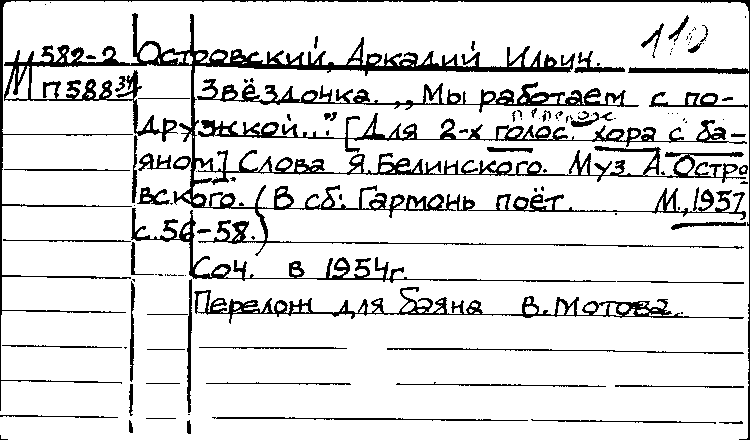 110
М 582-2 Островский, Аркадий Ильич.
П588 34 Звёздочка. „Мы работаем с по-
перелож
дружкой..." [Для 2-х голос. хора с ба-
яном] Слова Я. Белинского. Муз. А. Остро
вского. (В сб: Гармонь поёт. М., 1957,
с. 56-58.)
Соч. в 1954г.
Перелож для баяна В. Мотова.